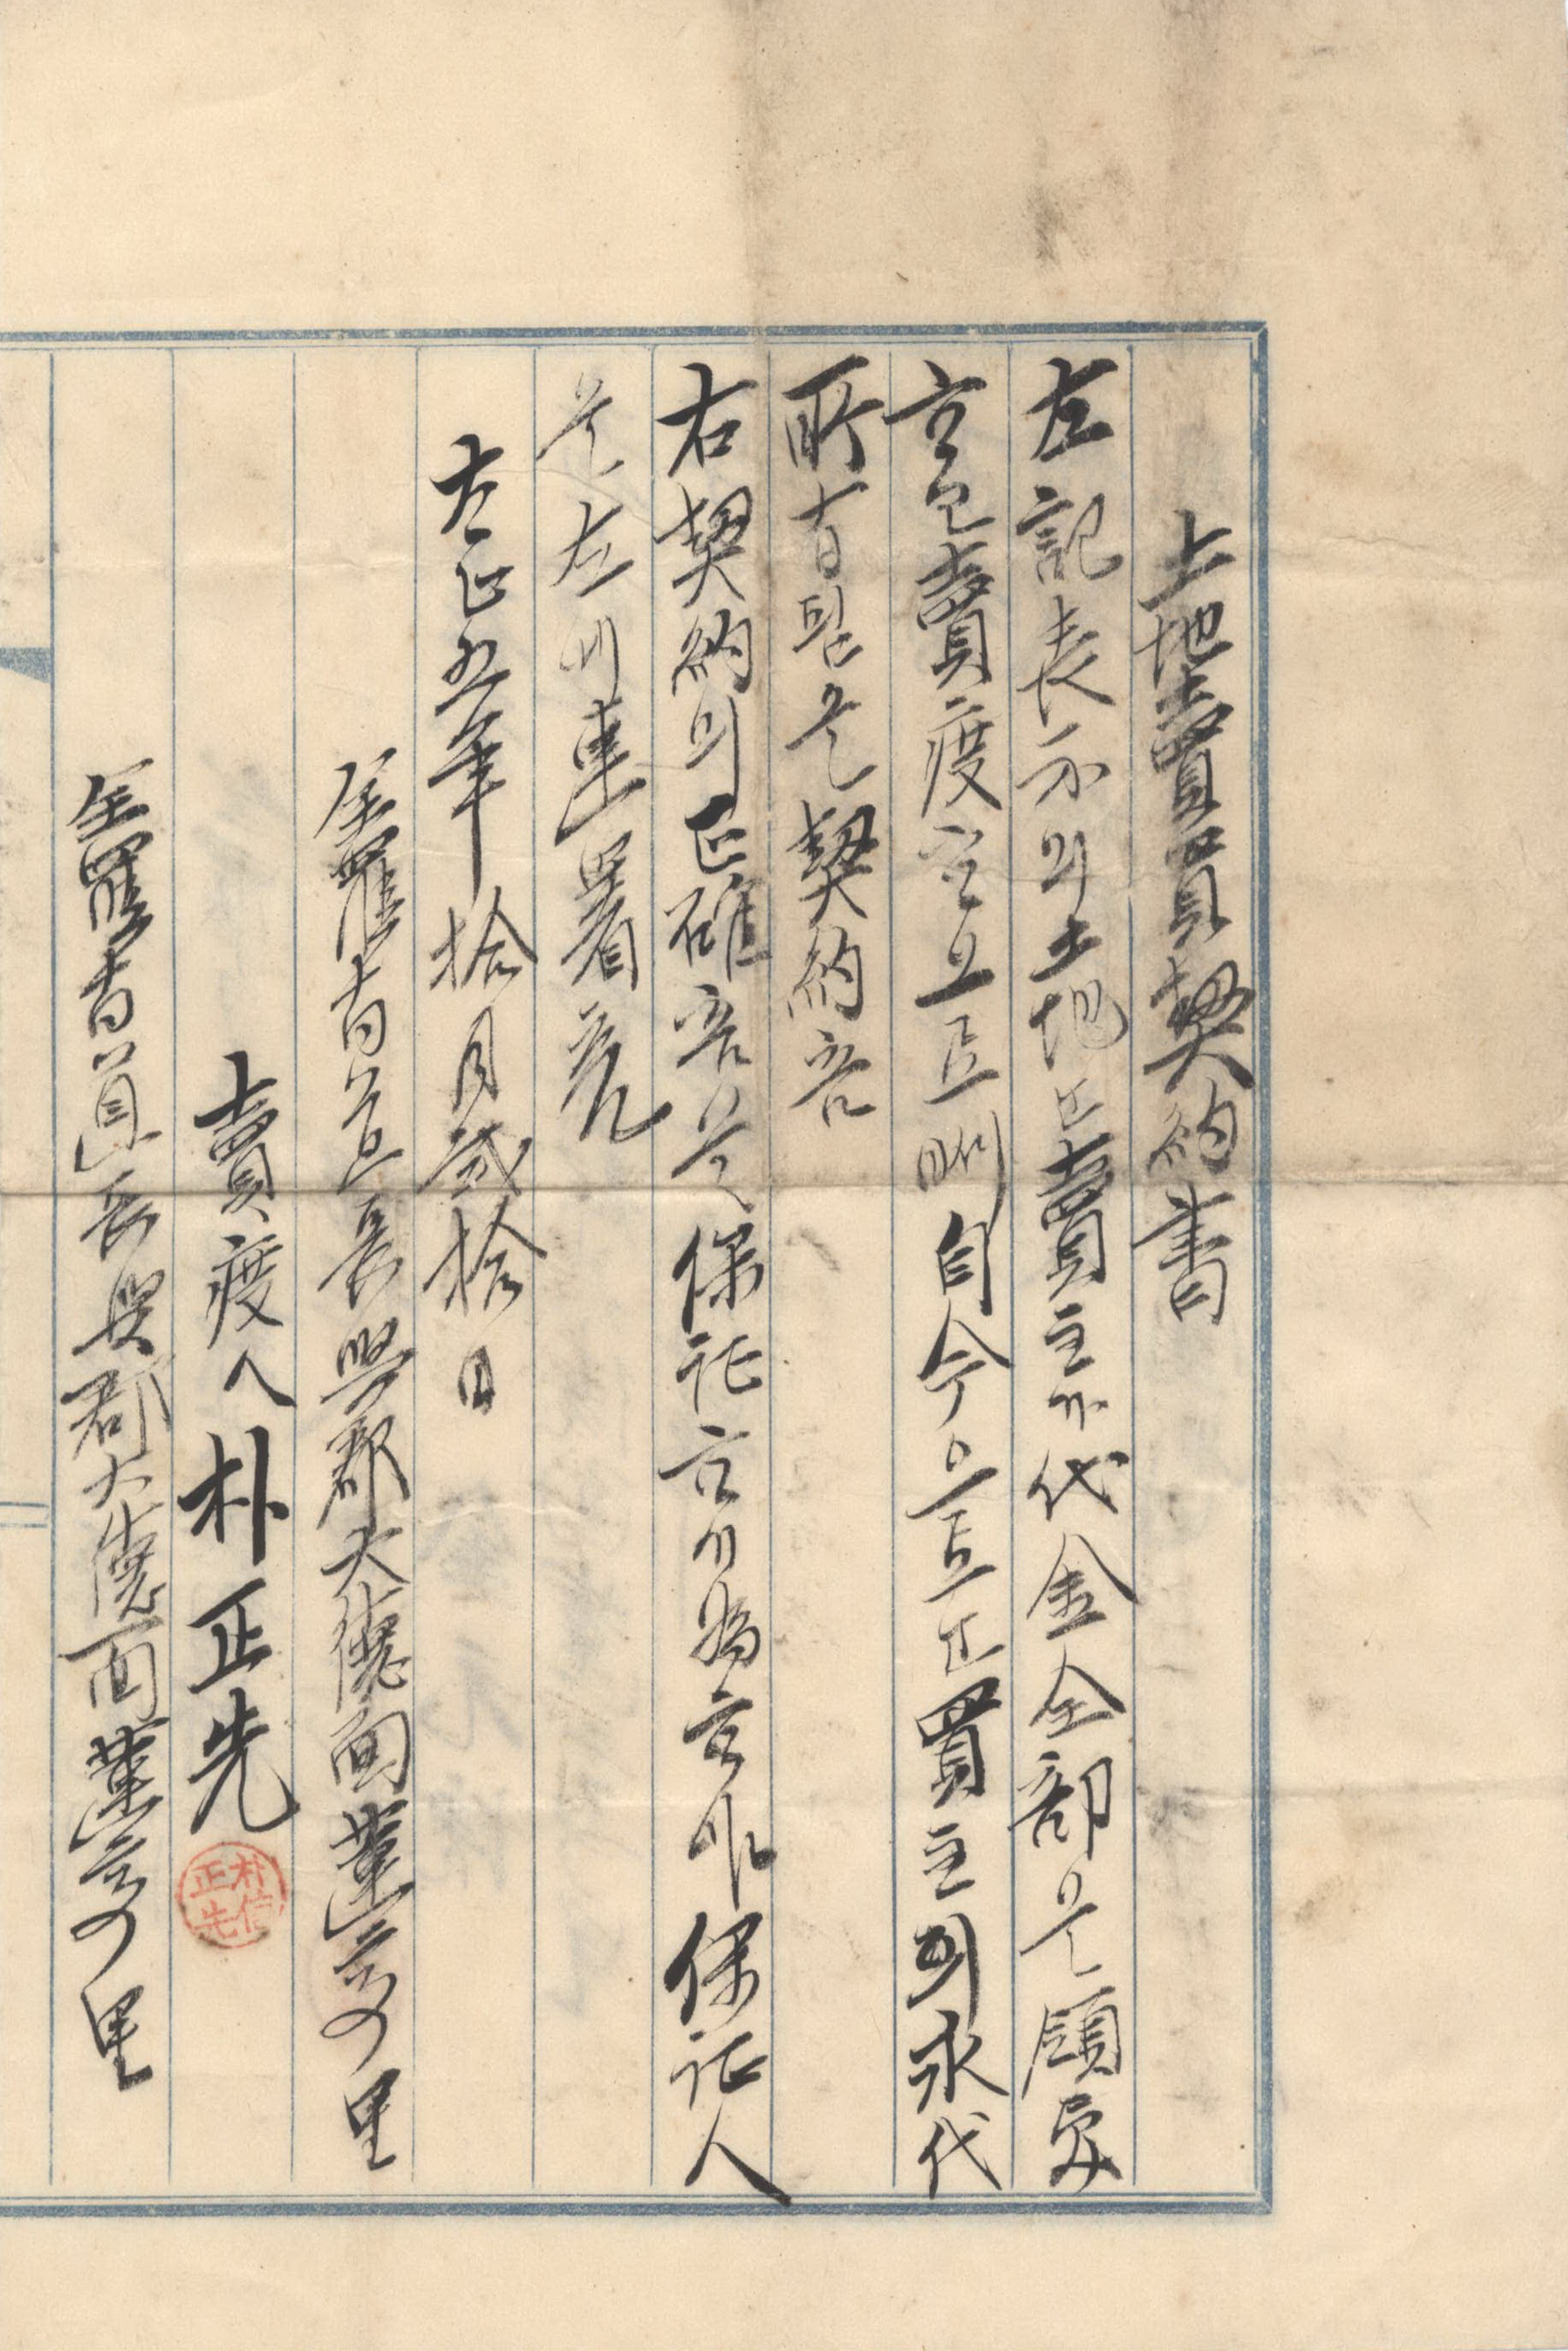 土地賣買契約書
左記表示의土地는賣主가代金全部를領受
하고賣渡하엿으며自今으로는買主의永代
所有됨을契約홈
右契約의正確홈을保证하기爲하야保证人
을左에連署홈
大正五年拾月貳拾日
全羅南道長興郡大德面蓮亭里
賣渡人朴正先
朴信正先
全羅南道長興郡大德面蓮亭里